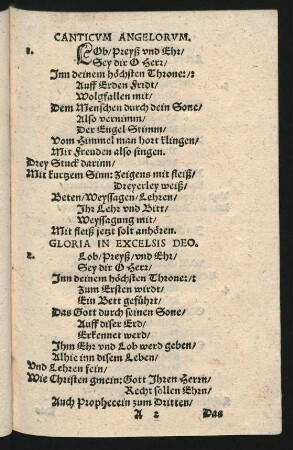 CANTICVM ANGELORVM.
1. LOb/ Preyß vnd Ehr/
Sey dir O Herr/
Inn deinem höchsten Throne:/:
Auff Erden Fridt/
Wolgfallen mit/
Dem Menschen durch dein Sone/
Also vernimm/
Der Engel Stimm/
Vom Himmel man hort klingen/
Mit Freuden also singen.
Drey Stuck darinn/
Mit kurtzem Sinn: Zeigens mit fleiß/
Dreyerley weiß/
Beten/ Weyssagen/ Lehren/
Ihr Lehr vnd Bitt/
Weyssagung mit/
Mit fleiß jetzt solt anhören.
GLORIA IN EXCELSIS DEO.
2. Lob/ Preyß/ vnd Ehr/
Sey dir O Herr/
Inn deinem höchsten Throne:/:
Zum Ersten wirdt/
Ein Bett geführt/
Das Gott durch seinen Sone/
Auff diser Erd/
Erkennet werd/
Ihm Ehr vnd Lob werd geben/
Alhie inn disem Leben/
Vnd Lehren fein/
Wie Christen gmein: Gott Ihren Herrn/
Recht sollen Ehrn/
Auch Prophecein zum Dritten/
A 2 Das